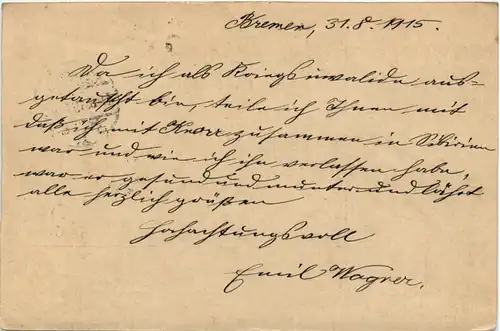 Bremen, 31.8.1915.
Da ich als Kriegsinvalide aus-
getauscht bin, teile ich Ihnen mit
daß ich mit Knorr zusammen in Sibirien
war und wie ich ihn verlassen habe,
war er gesund und munter und läßt
alle herzlich grüßen
Hochachtungsvoll
Emil Wagner.